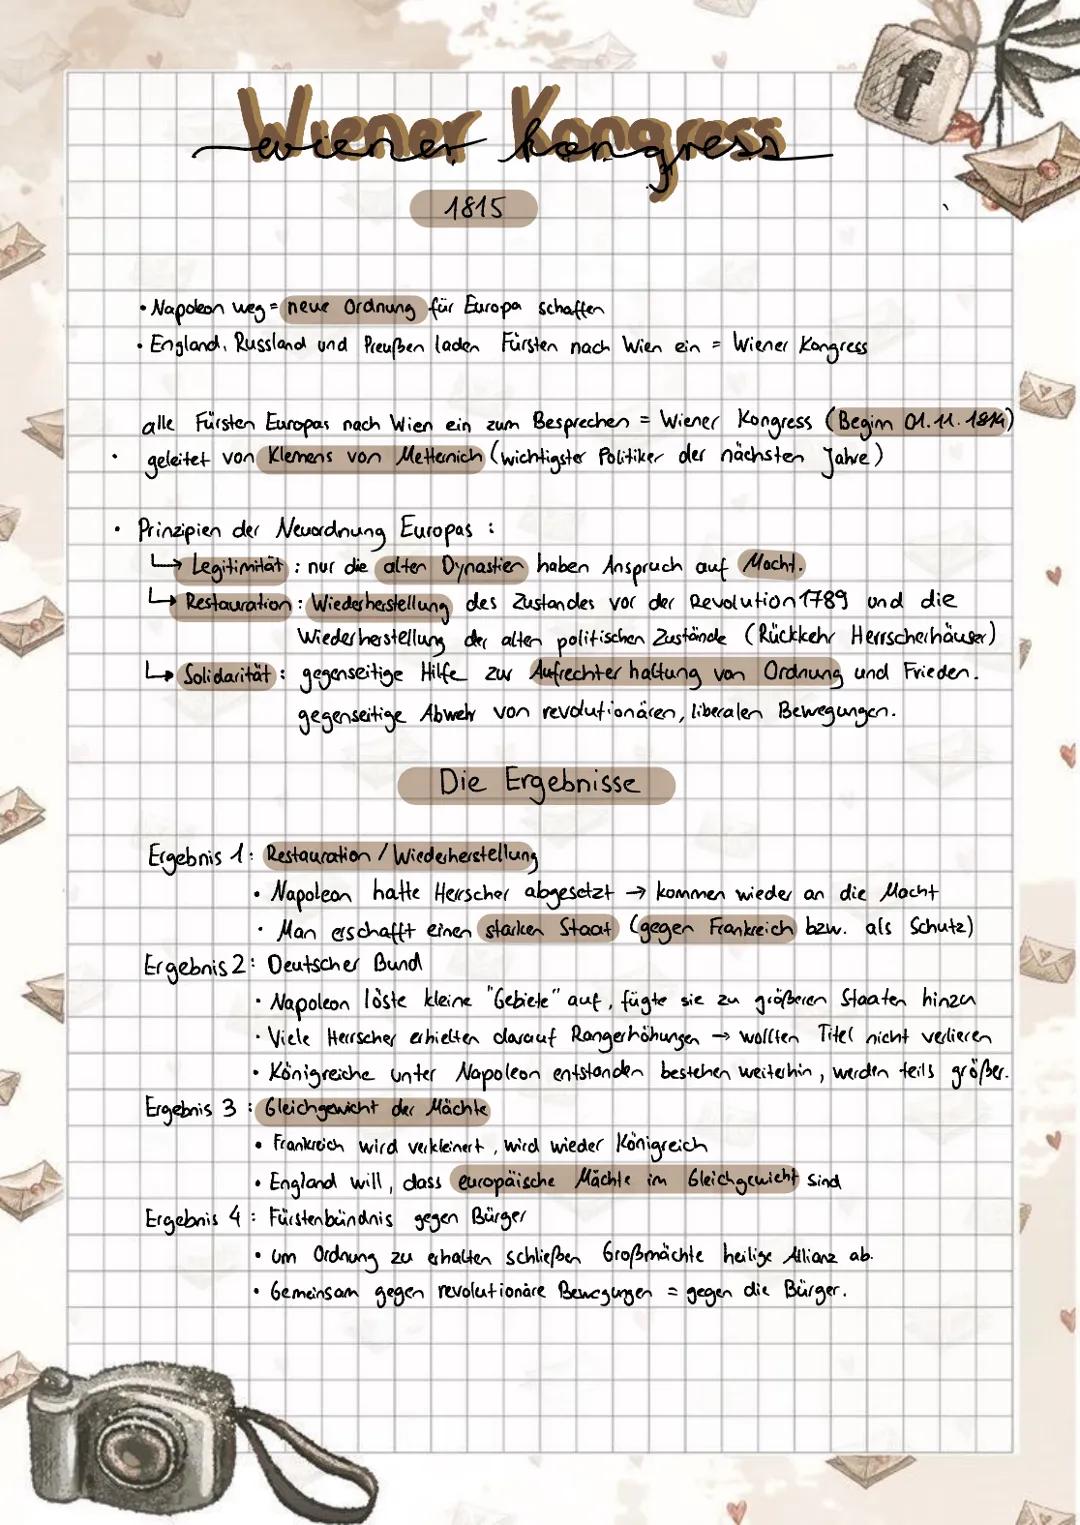 Wiener Kongress
wiener kongress
1815
• Napoleon weg = neue Ordnung für Europa schaffen
• England, Russland und Preußen laden Fürsten nach Wien ein = Wiener Kongress
alle Fürsten Europas nach Wien ein zum Besprechen = Wiener Kongress (Beginn 01.11.1814)
• geleitet von Klemens von Metternich (wichtigster Politiker der nächsten Jahre)
• Prinzipien der Neuordnung Europas :
↳ Legitimität : nur die alten Dynastien haben Anspruch auf Macht.
↳ Restauration : Wiederherstellung des Zustandes vor der Revolution 1789 und die
Wiederherstellung der alten politischen Zustände (Rückkehr Herrscherhäuser)
↳ Solidarität : gegenseitige Hilfe zur Aufrechterhaltung von Ordnung und Frieden.
gegenseitige Abwehr von revolutionären, liberalen Bewegungen.
Die Ergebnisse
Ergebnis 1: Restauration / Wiederherstellung
• Napoleon hatte Herrscher abgesetzt → kommen wieder an die Macht
• Man erschafft einen starken Staat (gegen Frankreich bzw. als Schutz)
Ergebnis 2: Deutscher Bund
• Napoleon löste kleine "Gebiete" auf, fügte sie zu größeren Staaten hinzu
• Viele Herrscher erhielten darauf Rangerhöhungen → wollten Titel nicht verlieren
• Königreiche unter Napoleon entstanden bestehen weiterhin, werden teils größer.
Ergebnis 3 : Gleichgewicht der Mächte
• Frankreich wird verkleinert, wird wieder Königreich
• England will, dass europäische Mächte im Gleichgewicht sind
Ergebnis 4 : Fürstenbündnis gegen Bürger
• um Ordnung zu erhalten schließen Großmächte heilige Allianz ab.
• Gemeinsam gegen revolutionäre Bewegungen = gegen die Bürger.
f